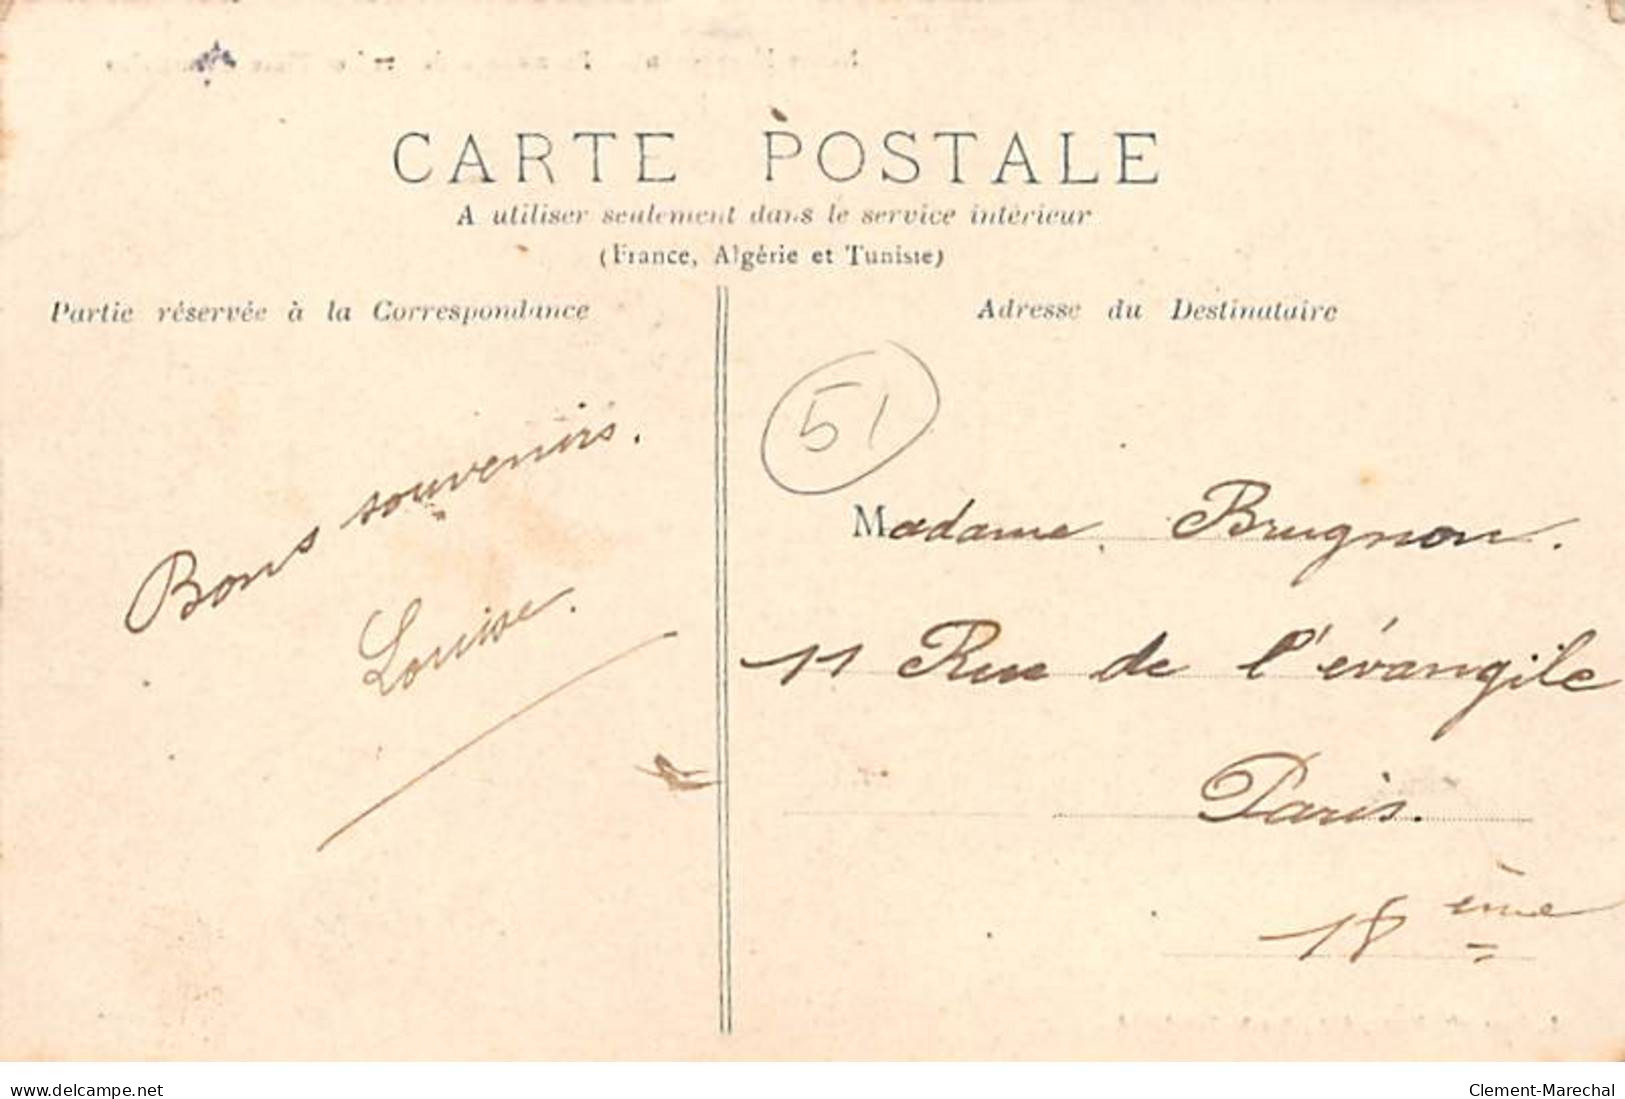 CARTE POSTALE
A utiliser seulement dans le service intérieur
(France, Algérie et Tunisie)
Partie réservée à la Correspondance
Adresse du Destinataire
51
Bons souvenirs.
Louise.
Madame Brugnon.
11 Rue de l'évangile
Paris.
18ème
www.delcampe.net
Clement-Marechal